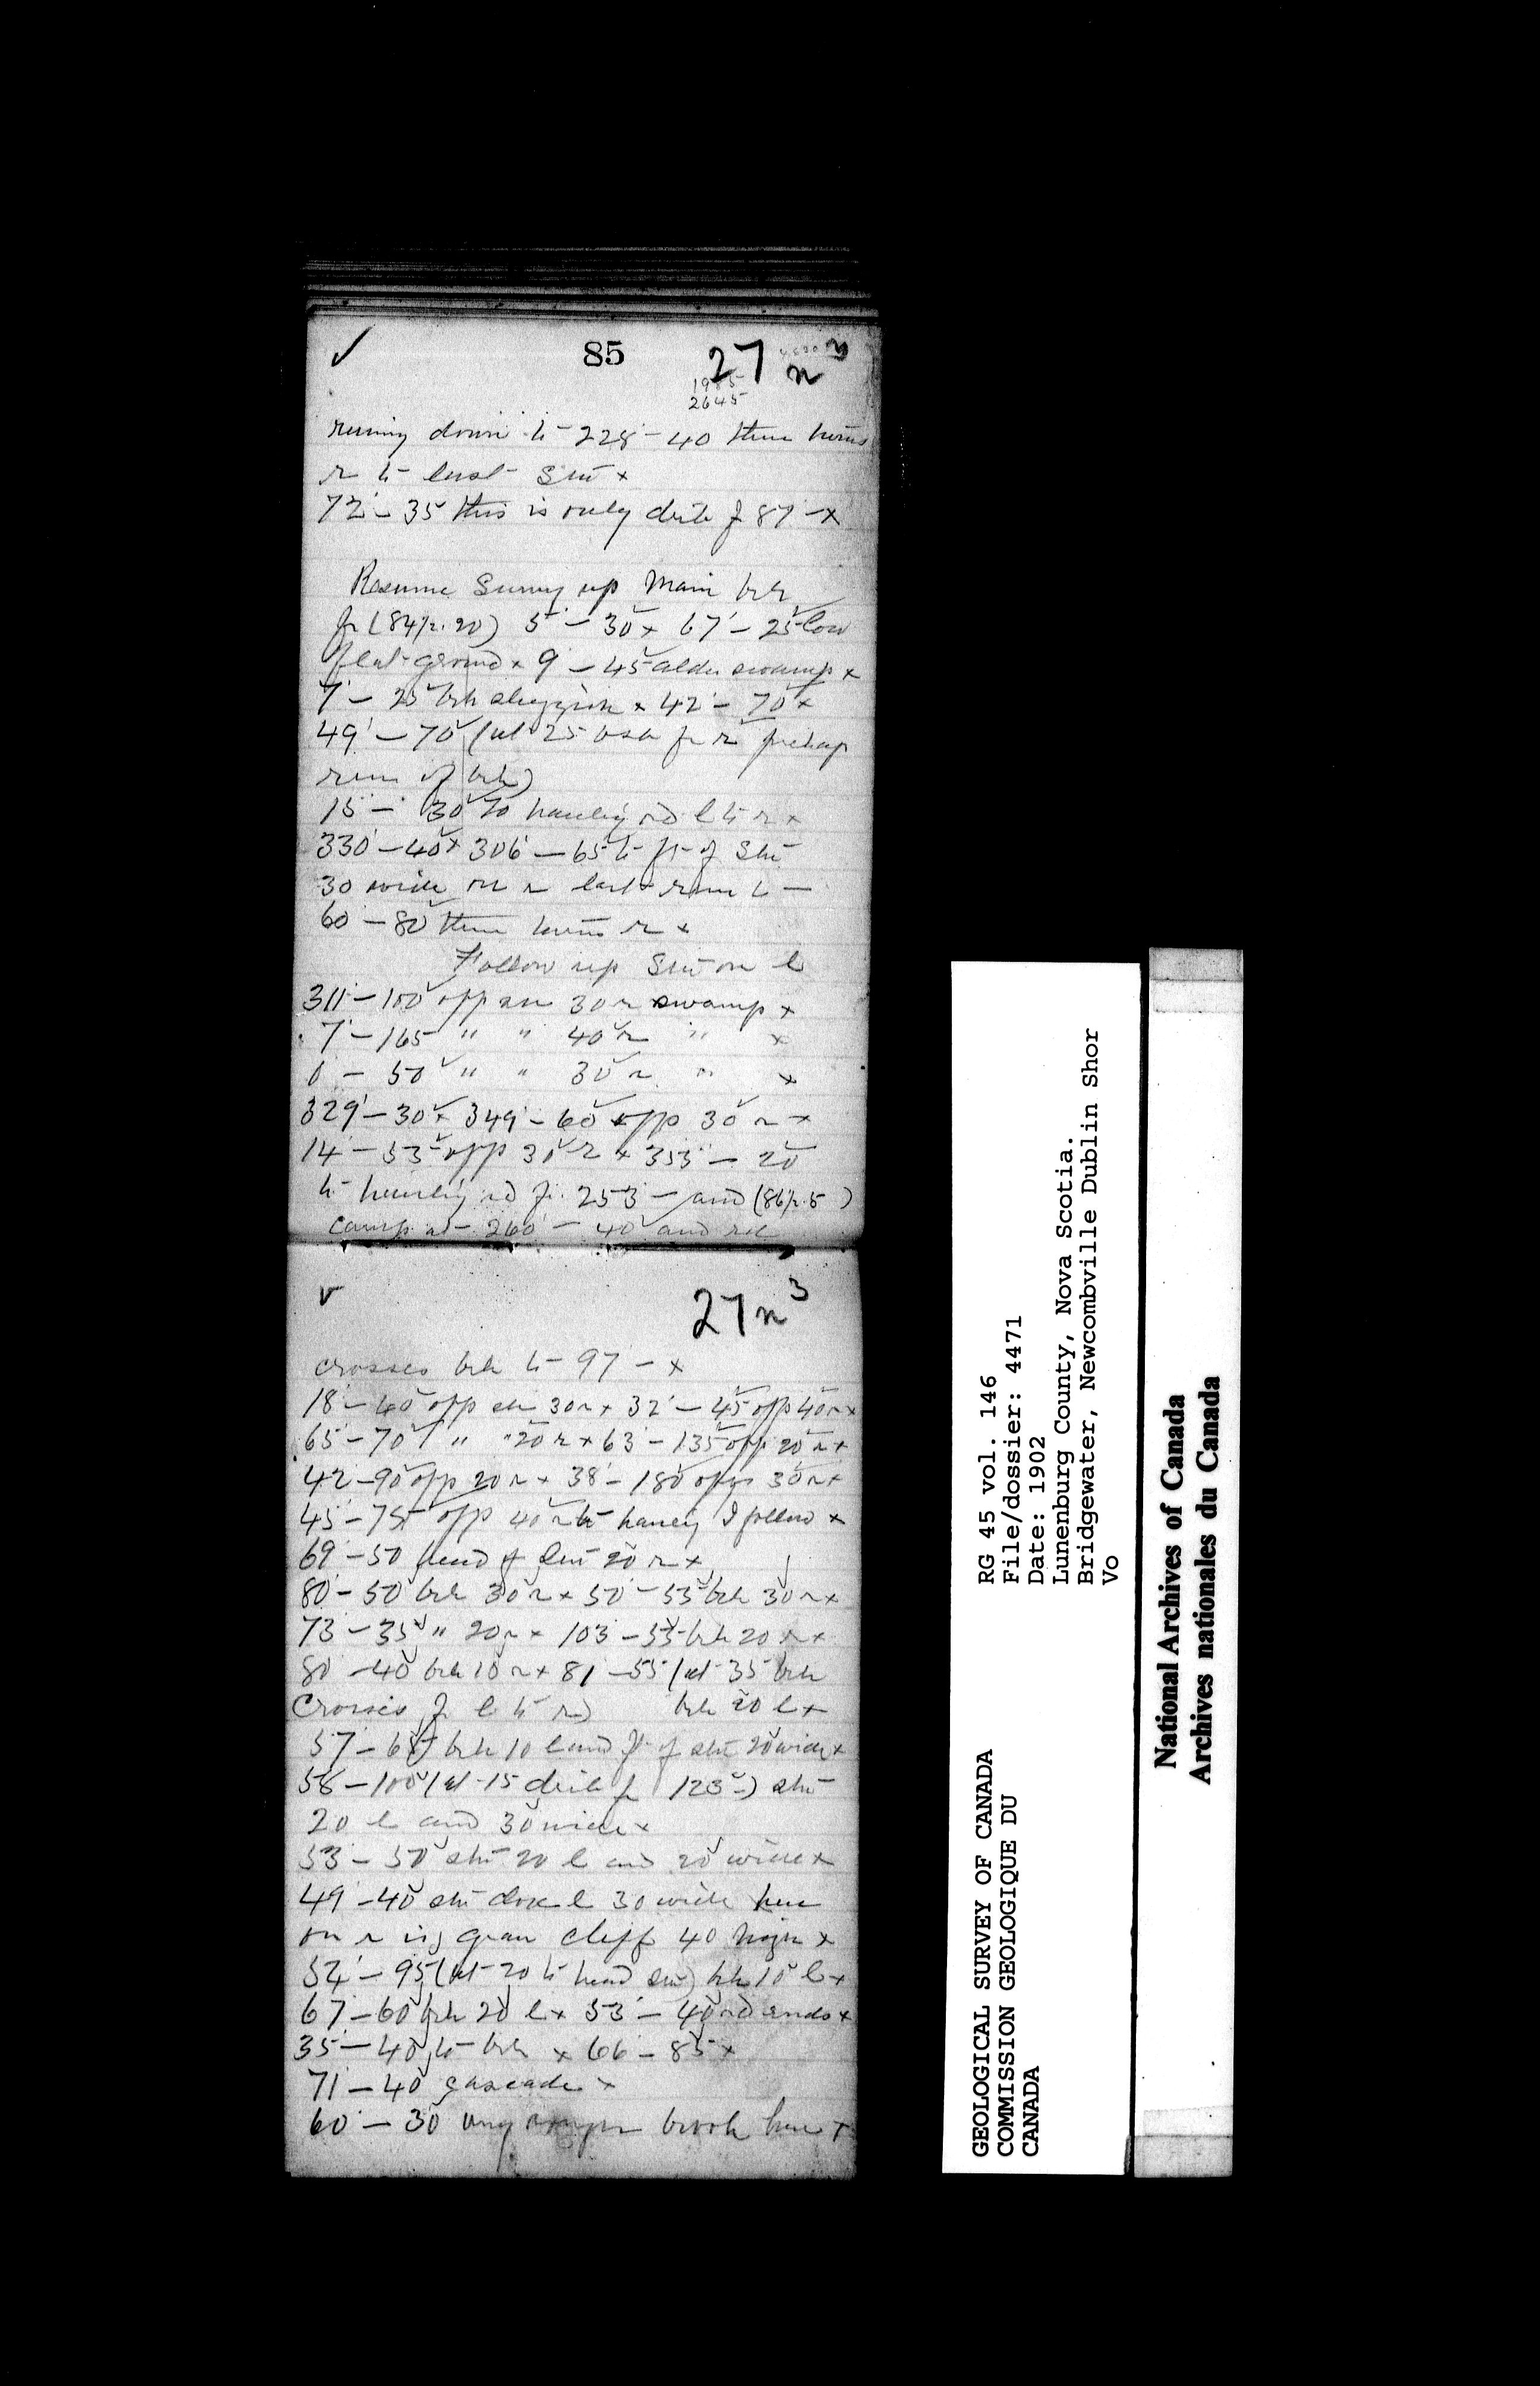 ✓ 85 27 n 3
1985
2645
down to 228 - 40 then turns
r to last Stw x
72 - 35 this is only dr f 87 - x
Resume Survey up Main brk
fr (84/r. 20) 5 - 30 x 67 - 25 low
flat ground x 9 - 45 alder swamp x
7 - 25 brk sluggish x 42 - 70 x
49 - 70 (at 25 fr r
run of brk)
15 - 30 to hauling rd l to r x
330 - 40 x 306 - 65 to ft of Stw
30 wide on r last
60 - 80 then turns r x
Follow up Stw on l
311 - 100 opp 30 r swamp x
7 - 165 " " 40 r " x
0 - 50 " " 30 r " x
329 - 30 x 349 - 60 opp 30 r x
14 - 55 opp 30 r x 353 - 20
to hauling rd fr. 253 - and (86/r. 5)
camp at - 260 - 40 and rd
✓ 27 n 3
crosses brk to 97 - x
18 - 60 opp stw 30 r x 32 - 45 opp 40 r x
65 - 70 " " 20 r x 63 - 135 opp 20 r x
42 - 90 opp 20 r x 38 - 180 opp 30 r x
45 - 75 opp 40 r I follow x
69 - 50 head of Stw 20 r x
80 - 50 brk 30 r x 50 - 55 brk 30 r x
73 - 35 " 20 r x 103 - 55 brk 20 r x
80 - 40 brk 10 r x 81 - 55 (at 35 brk
Crosses fr l to r) brk 20 l x
57 - 65 brk 10 l and ft of stw 20 wide x
56 - 100 (at 15 fr 123 -) stw
20 l and 30 wide x
53 - 50 stw 20 l and 20 wide x
49 - 40 stw close l 30 wide here
on r is gran cliff 40 high x
52 - 95 (at 20 to head stw) brk 10 l x
67 - 60 brk 20 l x 53 - 40 rd ends x
35 - 40 to brk x 66 - 85 x
71 - 40 cascade x
60 - 30 brook here x
GEOLOGICAL SURVEY OF CANADA
COMMISSION GEOLOGIQUE DU
CANADA
RG 45 vol. 146
File/dossier: 4471
Date: 1902
Lunenburg County, Nova Scotia.
Bridgewater, Newcombville Dublin Shor
Vo
National Archives of Canada
Archives nationales du Canada